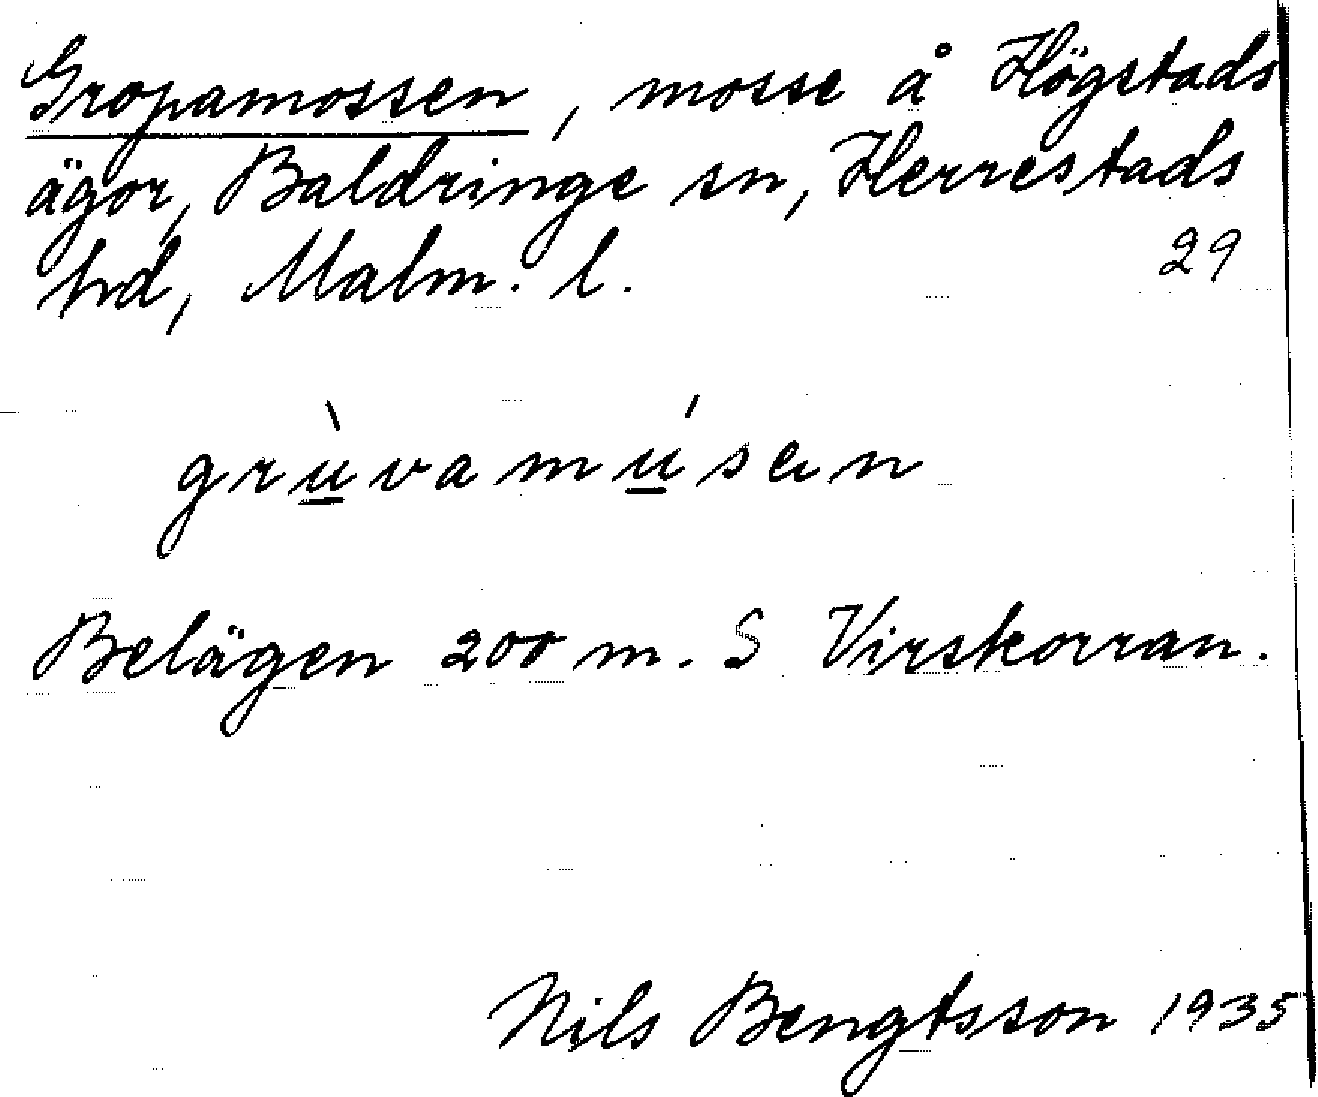 Gropamossen, mosse å Högstads
ägor, Baldringe sn, Herrestads
hrd, Malm. l. 29
grùvamúsen
Belägen 200 m. S Virskorran.
Nils Bengtsson 1935